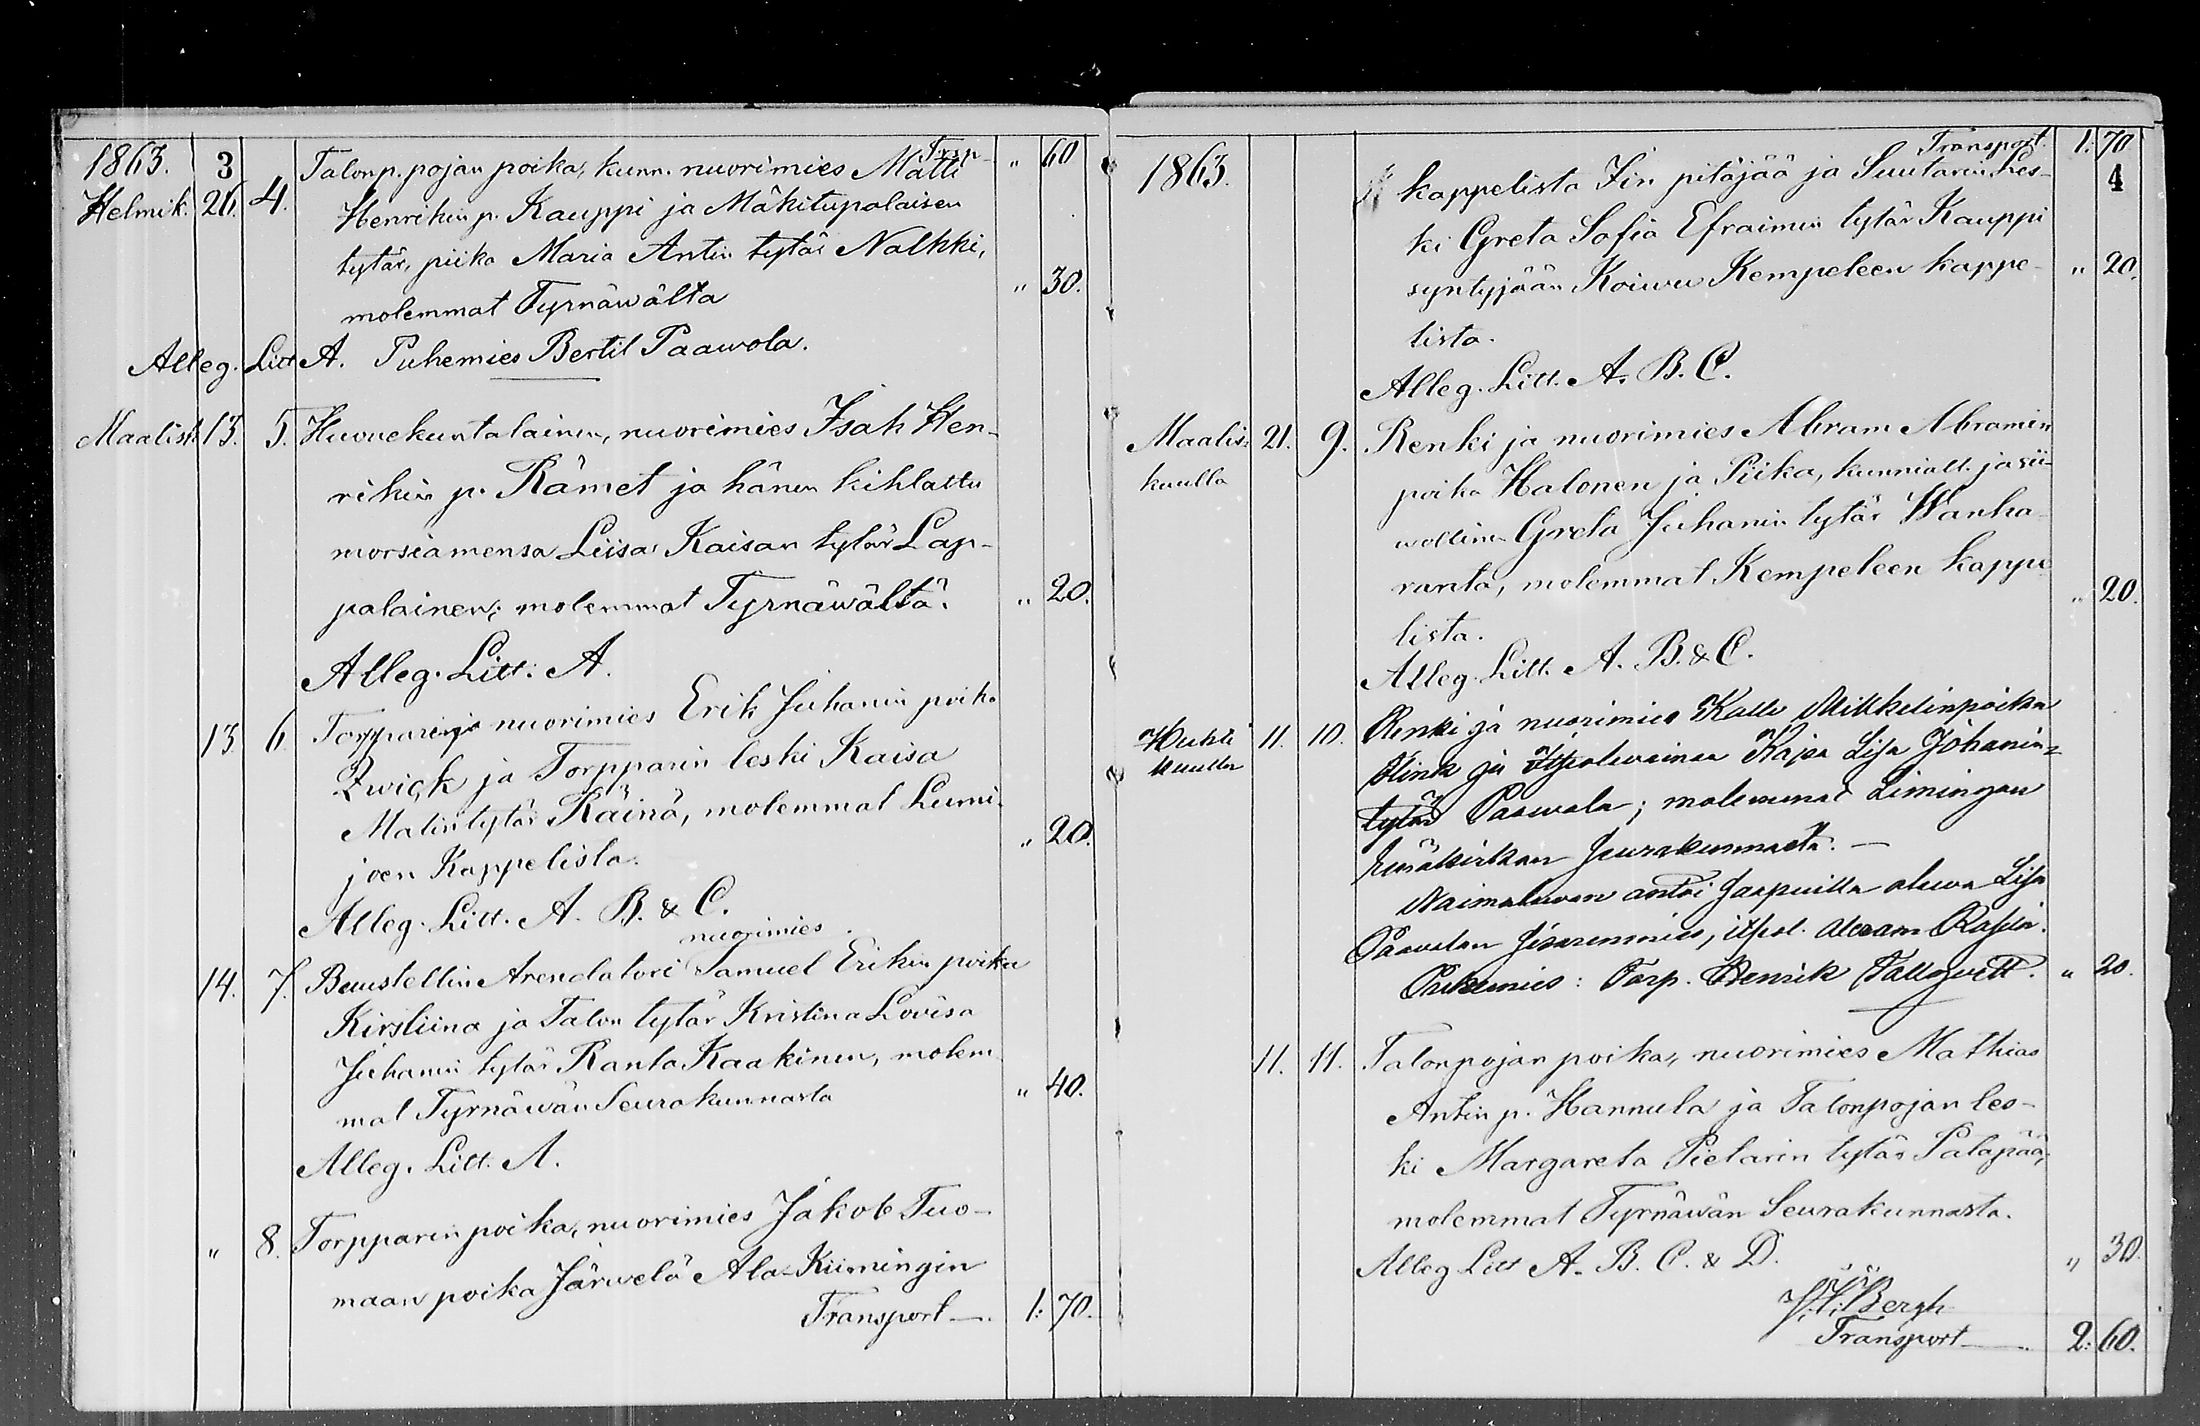 Trsp. " 60
1863. 3 Talonp. pojan poika, kunn. nuorimies Matti
Helmik. 26. 4. Henrikin p. Kauppi ja Mäkitupalaisen
tytär, piika Maria Antin tytär Nalkki,
molemmat Tyrnäwältä " 30.
Alleg. Litt A. Puhemies Bertil Paawola.
Maalisk 13. 5. Huonekuntalainen, nuorimies Isak Hen-
rikin p. Rämet ja hänen kihlattu
morsiamensa Liisa Kaisan tytär Lap-
palainen; molemmat Tyrnäwältä. " 20.
Alleg. Litt. A.
13 6 Torppari ja nuorimies Erik Juhanin poika
Zwick ja Torpparin leski Kaisa
Matin tytär Räinä, molemmat Lumi-
joen Kappelista. " 20.
Alleg. Litt. A. B. & C.
nuorimies
14. 7. Buustellin Arendatori Samuel Erikin poika
Kirstiina ja Talon tytär Kristina Lovisa
Juhanin tytär Ranta Kaakinen, molem
mat Tyrnäwän Seurakunnasta " 40.
Alleg. Litt. A.
" 8. Torpparin poika, nuorimies Jakob Tuo-
maan poika Järwelä Ala-Kiimingin
Transport 1: 70.
Transport. 1: 70
1863. kappelista Iin pitäjää ja Suutarin Les- 4
ki Greta Sofia Efraimin tytär Kauppi
syntyjään Koiwu Kempeleen kappe- " 20.
lista.
Alleg. Litt. A. B. C.
Maalis 21. 9. Renki ja nuorimies Abram Abramin
kuulla poika Halonen ja Piika, kunniall. ja sii-
wollinen Greta Juhanin tytär Wanha
ranta, molemmat Kempeleen kappe " 20.
lista.
Alleg. Litt. A. B. & C.
Huhti 11. 10. Renki ja nuorimies Kalle Mikkelinpoika
kuulla Flink ja Itpolewainen Kajsa Lisa Johanin=
tytär Paawola; molemmat Limingan
Emäkirkon Seurakunnasta. —
Naimaluwan antoi saapuilla olewa Lisa
Paawolan sisarenmies, itpol. Abram
Puhemies: Torp. Henrik Tallqvitt. " 20.
11. 11. Talonpojan poika, nuorimies Mathias
Antin p. Hannula ja Talonpojan les-
ki Margareta Pietarin tytär Salapää;
molemmat Tyrnäwän Seurakunnasta.
Alleg Litt A. B. C. & D. " 30.
Bergh
Transport 2: 60.